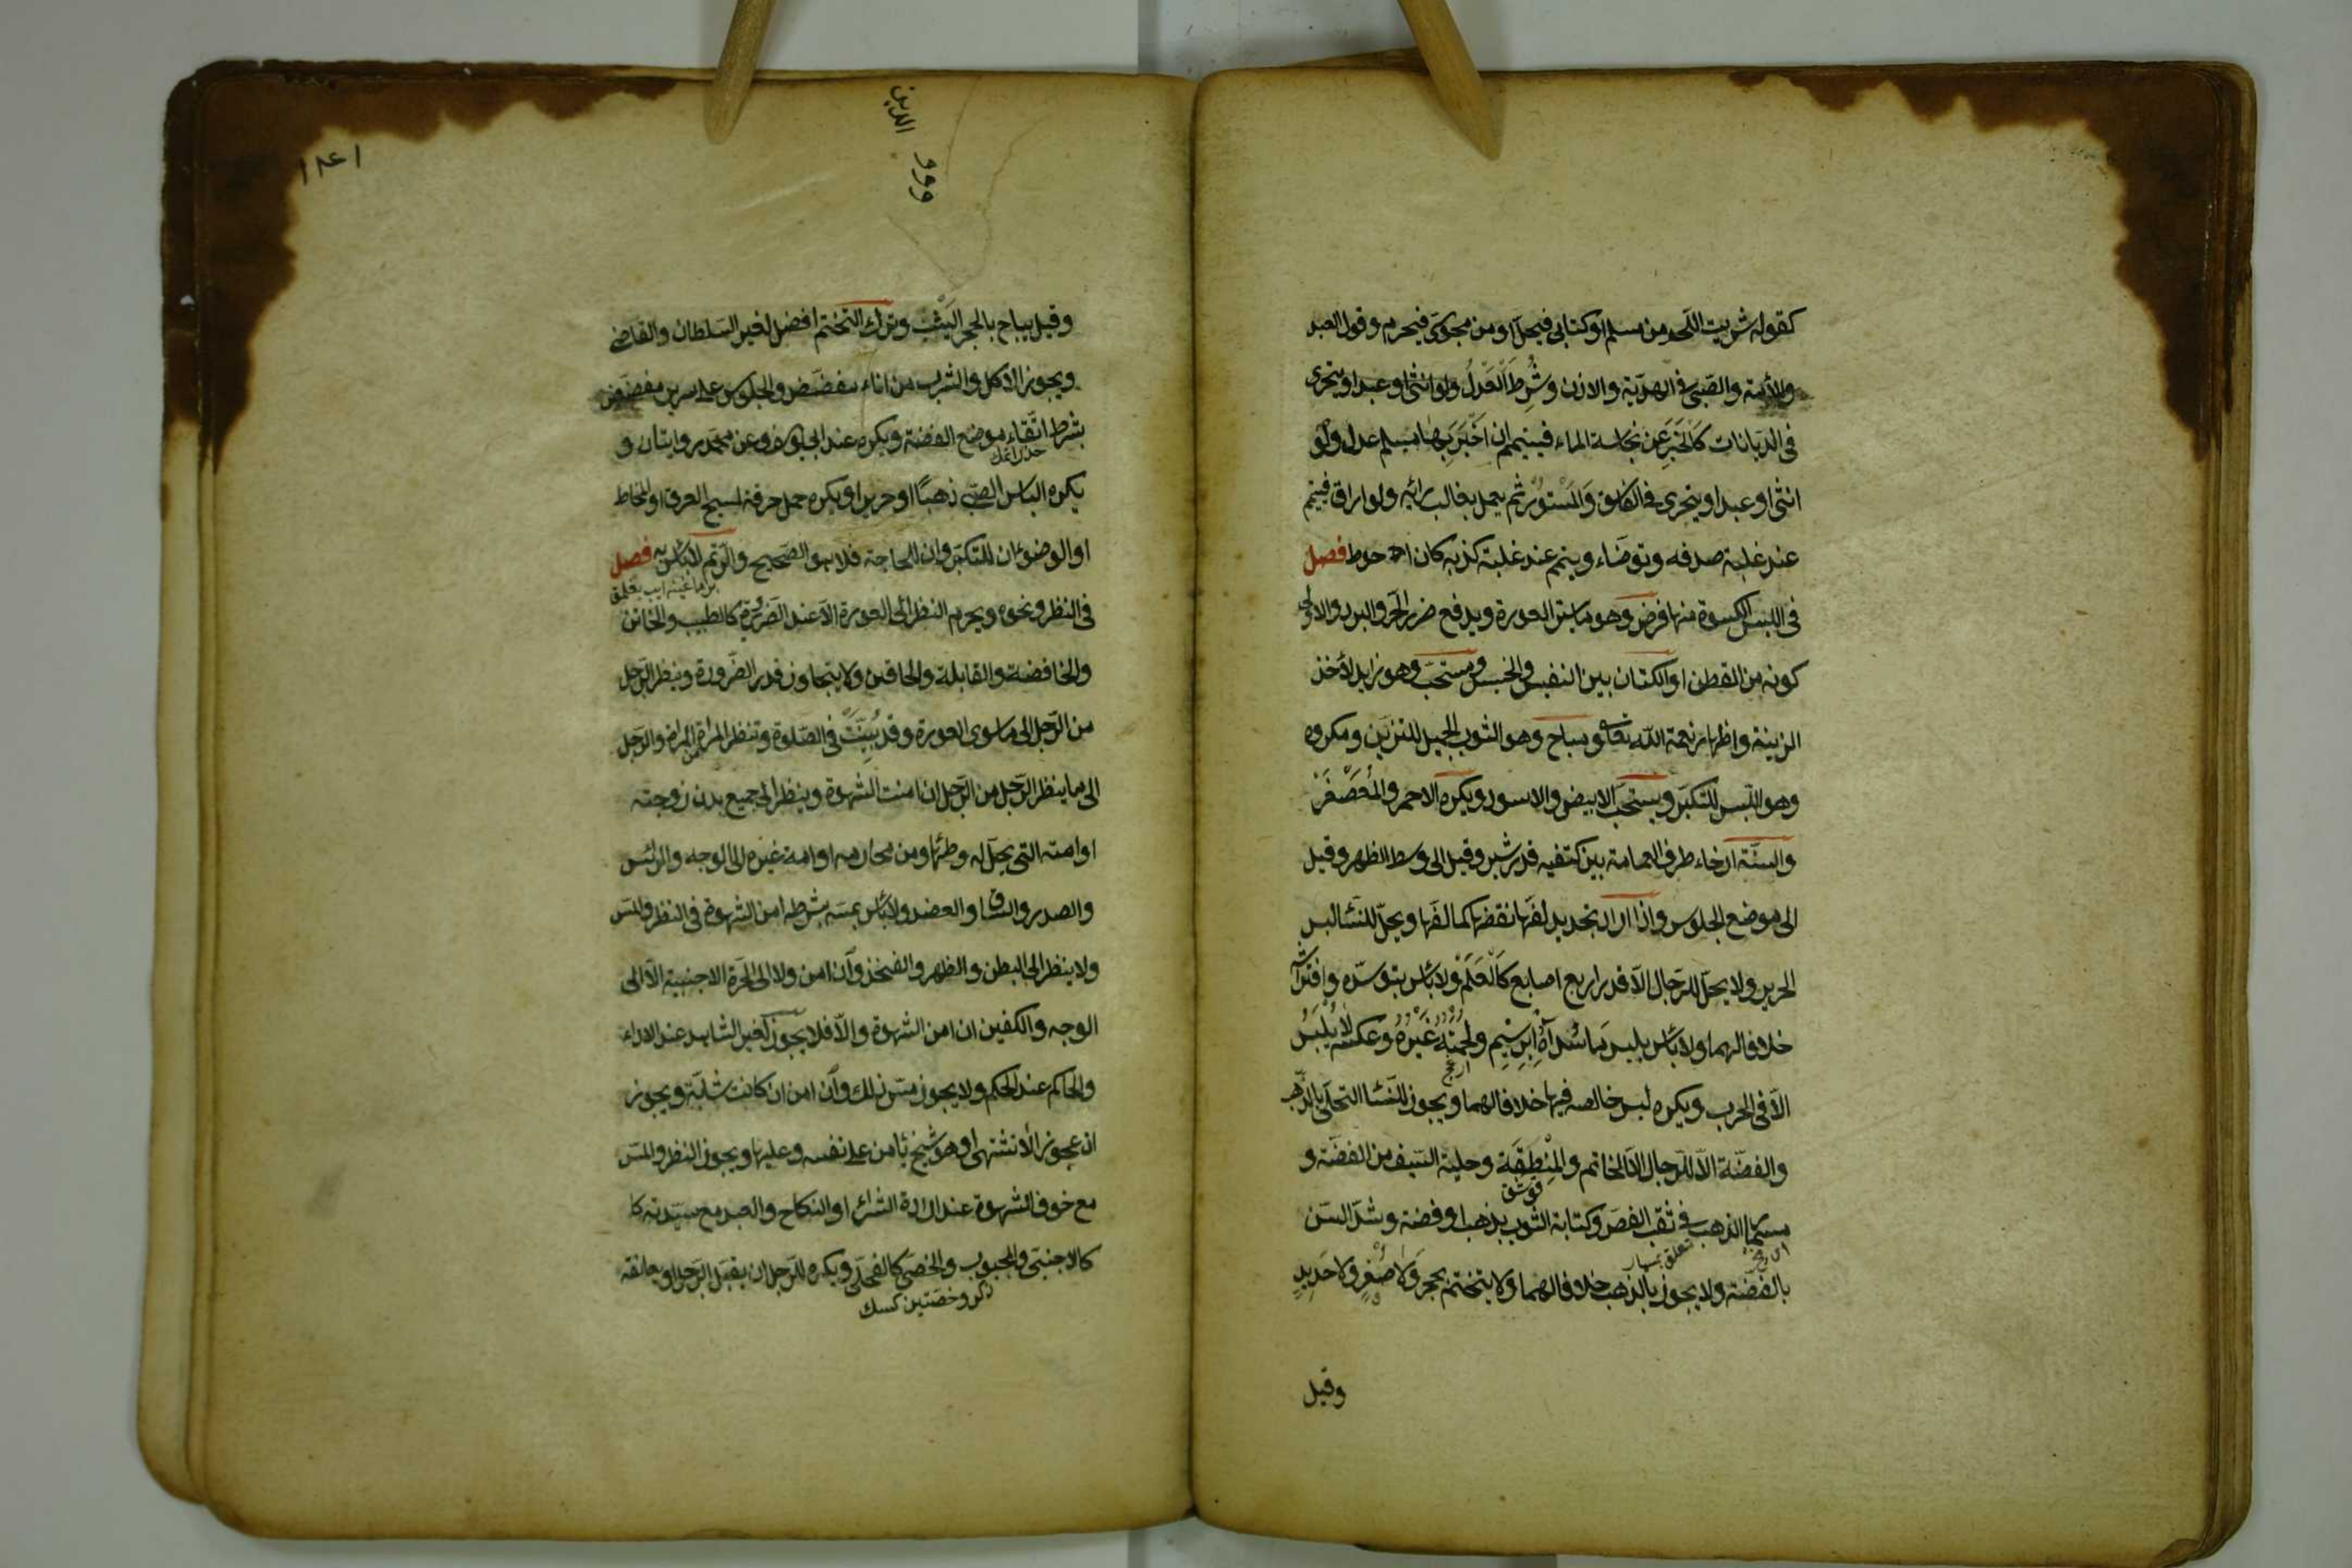 كقوله شريت اللحم من مسلم او كتابى فيحل او من مجوسى فيحرم وقول العبد
والأمة والصبى فى الهدية والاذن وشُرِطَ الْعَدْلُ ولو انثى او عبدا ويتحرى
فى الديانات كَالْخَبَرِ عَنْ نجاسة الماء فيتيمم ان اَخْبَرَ بِها مسلم عدل ولو
انثى او عبدا ويتحرى فى الفاسق وَالْمَسْتُورِ ثم يعمل بغالب رائيه ولو اراق فيتمم
عند غلبة صدقه وتوضاء ويتمم عند غلبة كذبه كان احوط فصل
فى اللبس الكسوة منها فرض وهو ما يستر العورة ويدفع ضرر الحر والبرد والاولى
كونه من القطن او الكتان بين النفيس والخسيس ومستحب وهو زايد لأخذ
الزينة واظهار نعمة الله تعالى ومباح وهو الثوب الجميل للتزين ومكروه
وهو اللبس للتكبر ويستحب الابيض والاسود ويكره الاحمر والمُعَصْفَرُ
والسنة ارخاء طرف العمامة بين كتفيه قدر شبر وقيل الى وسط الظهر وقيل
الى موضع الجلوس واذا اراد تجديد لفها نقضها كما لفها ويحل للنسا لبس
الحرير ولا يحل للرجال الا قدر اربع اصابع كَالْعَلَمْ ولا بأس بتوسده وافتراشه
خلافا لهما ولا بأس بلبس مَا سُدَاهُ اِبْرِيسِمٍ ولحمَتُهُ غَيْرُهُ وَعكسه لَا يُلْبَسُ
الا فى الحرب ويكره لبس خالصه فيها خلافا لهما ويجوز للنسا التحلى بالذهب
والفضة الا للرجال الا الخاتم والْمِنْطَقَة وحلية السيف من الفضة و
قوشق
مسمار الذهب فى ثقب الفص وكتابة الثوب بذهب او فضة وشد السن
تعلق بمسمار
بالفضة ولا يجوز بالذهب خلافا لهما ولا يتختم بحجر وَلَا صُفْرٍ وَلَا حَدِيدٍ
وقيل
١٨٤١
وقيل يباح بالحجر اليَشْب وترك التختم افضل لغير السلطان والقاضى
ويجوز الاكل والشرب من اناء مفضض والجلوس على سرير مفضض
بشرط اتقاء موضع الفضة ويكره عند ابى يوسف وعن محمد روايتان و
يكره الباس الصبى ذهبًا او حريرا ويكره حمل خرقة لمسح العرق او المخاط
او الوضوء ان للتكبر وان للحاجة فلا هو الصحيح والرتم لا بأس به فصل
فى النظر ونحوه ويحرم النظر الى العورة الا عند الضرورة كالطبيب والخاتن
والخافضة والقابلة والحاقن ولا يتجاوز قدر الضرورة وينظر الرجل
من الرجل الى ما سوى العورة وقد بُيِّنَتْ فى الصلوة وتنظر المرأة من المرأة والرجل
الى ما ينظر الرجل من الرجل ان امنت الشهوة وينظر الى جميع بدن زوجته
او امته التى يحل له وطئها ومن محارمه او امة غيره الى الوجه والرأس
والصدر والساق والعضد ولا بأس بمسه بشرط امن الشهوة فى النظر والمس
ولا ينظر الى البطن والظهر والفخذ وان امن ولا الى الحرة الاجنبية الا الى
الوجه والكفين ان امن الشهوة والا فلا يجوز لغير الشاهد عند الاداء
والحاكم عند الحكم ولا يجوز مس ذلك وان امن ان كانت شابة ويجوز
ان عجوز الا تشتهى او هو شيخ يأمن على نفسه وعليها ويجوز النظر والمس
مع خوف الشهوة عند ارادة الشراء او النكاح والعبد مع سيدته كا
كالاجنبى والمجبوب والخصى كالفحل ويكره للرجل ان يقبل الرجل او يعانقه